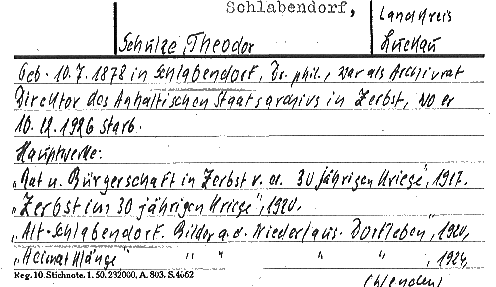 Schlabendorf,
Landkreis
Schulze, Theodor
Luckau
Geb. 10.7.1878 in Schlabendorf, Dr. phil., war als Archivrat
Direktor des Anhaltischen Staatsarchivs in Zerbst, wo er
10.12.1926 starb.
Hauptwerke:
„Rat u. Bürgerschaft in Zerbst v. d. 30 jährigen Kriege", 1917.
„Zerbst im 30 jährigen Kriege", 1920.
„Alt-Schlabendorf. Bilder a.d. Niederlaus. Dorfleben", 1920,
„Heimatklänge" " " " " , 1924,
Reg. 10. Stichnote. 1. 50. 232000, A. 803. S. 4662
(Wenden)